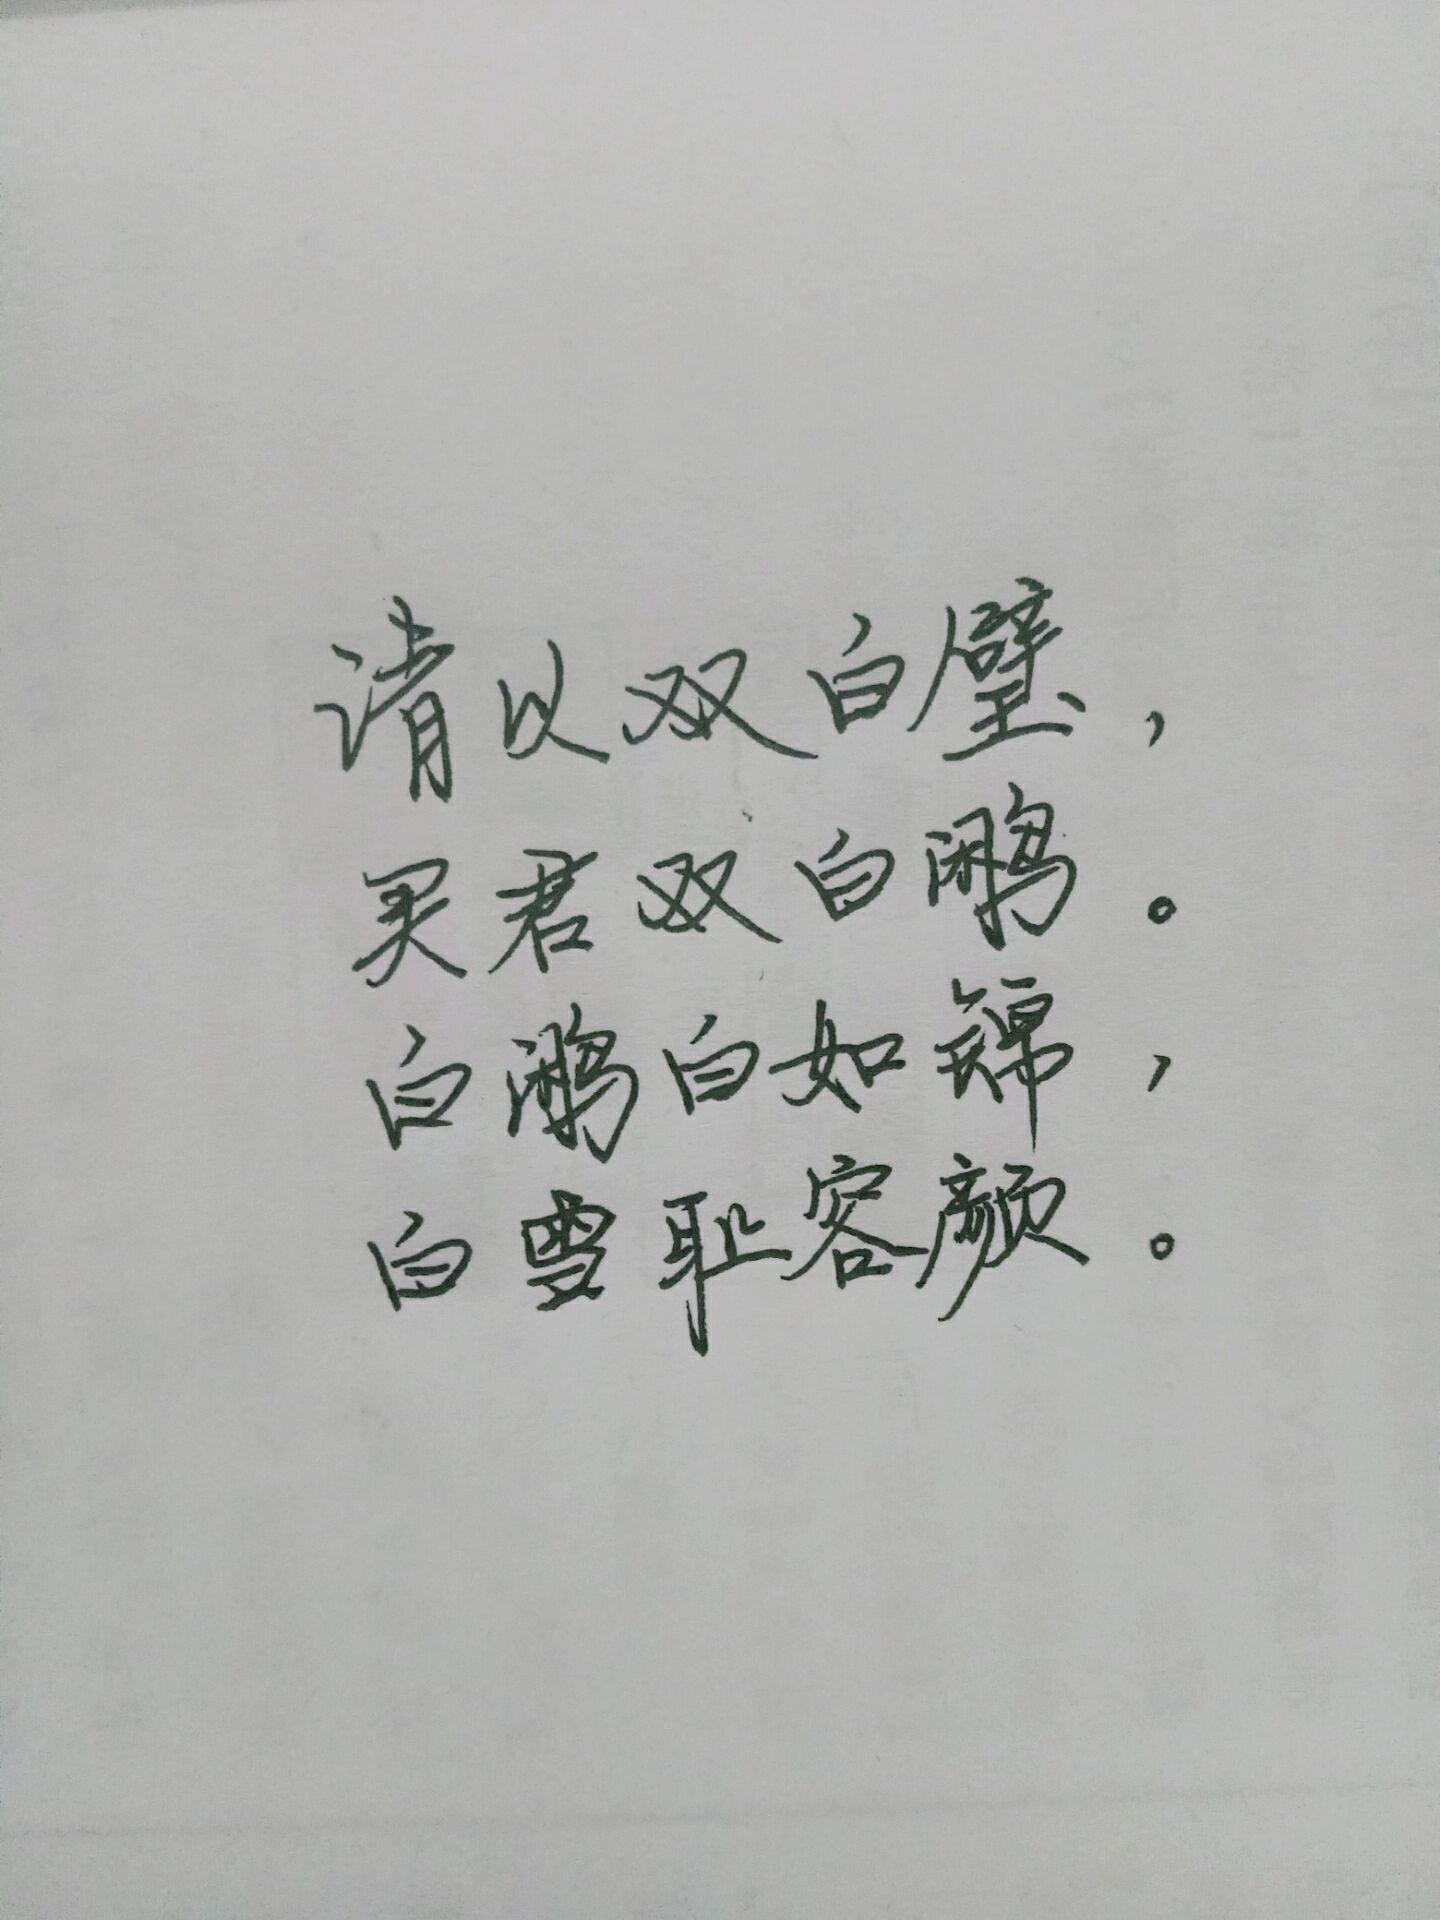 请以双白璧，
买君双白鹇。
白鹇白如锦，
白雪耻容颜。